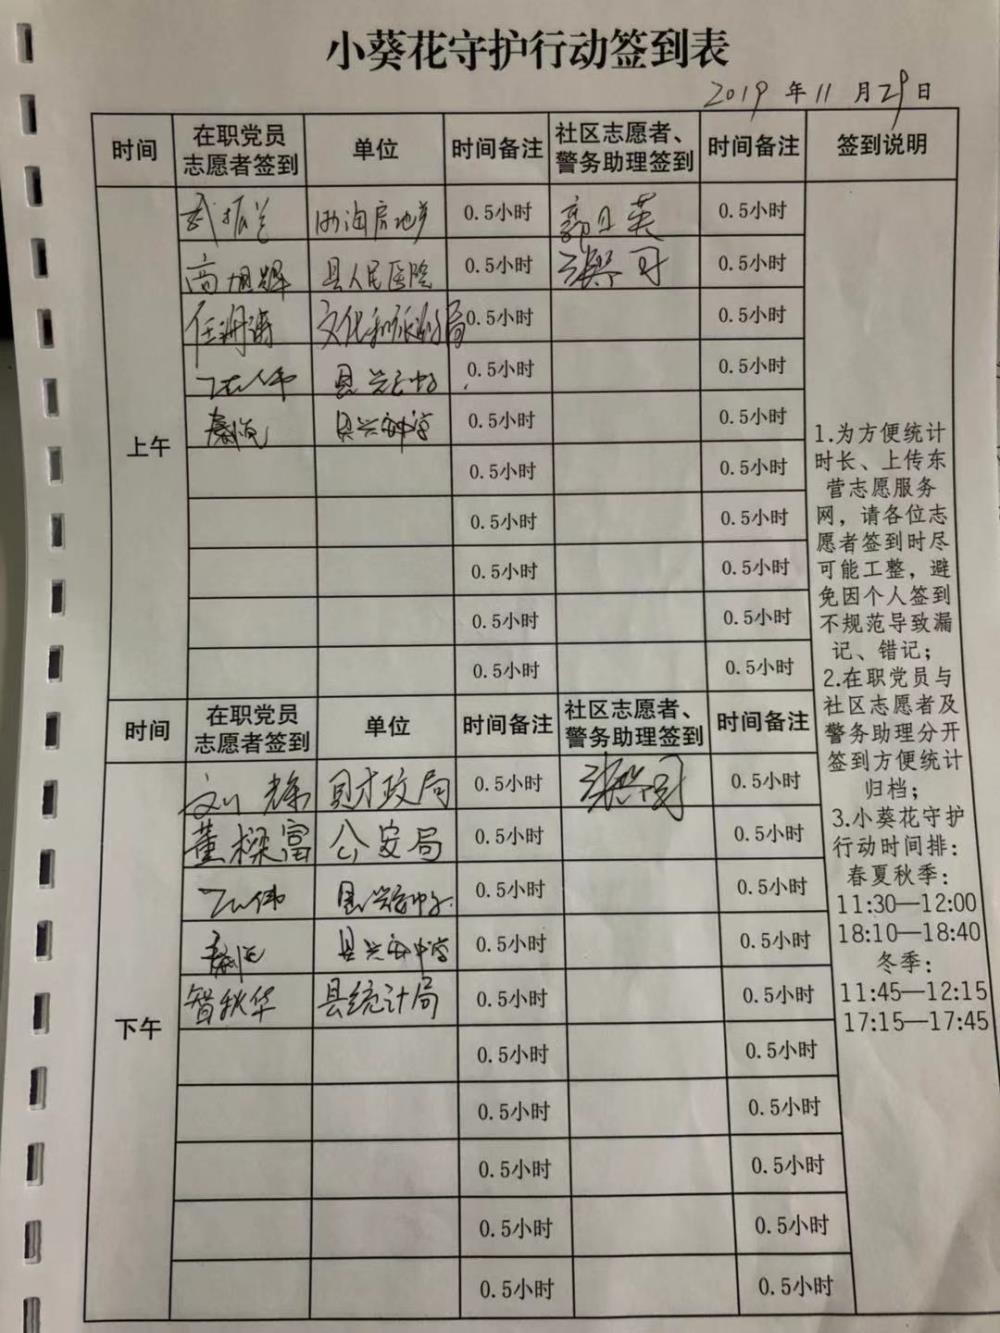 小葵花守护行动签到表
2019 年 11 月 29 日
时间 在职党员志愿者签到 单位 时间备注 社区志愿者、警务助理签到 时间备注 签到说明
上午
0.5小时 0.5小时
县人民医院 0.5小时 0.5小时
0.5小时 0.5小时
0.5小时 0.5小时
县兴安中学 0.5小时 0.5小时
0.5小时 0.5小时
0.5小时 0.5小时
0.5小时 0.5小时
0.5小时 0.5小时
0.5小时 0.5小时
时间 在职党员志愿者签到 单位 时间备注 社区志愿者、警务助理签到 时间备注
下午
财政局 0.5小时 0.5小时
董樑富 公安局 0.5小时 0.5小时
0.5小时 0.5小时
县兴安中学 0.5小时 0.5小时
智秋华 县统计局 0.5小时 0.5小时
0.5小时 0.5小时
0.5小时 0.5小时
0.5小时 0.5小时
0.5小时 0.5小时
0.5小时 0.5小时
1.为方便统计
时长、上传东
营志愿服务
网，请各位志
愿者签到时尽
可能工整，避
免因个人签到
不规范导致漏
记、错记；
2.在职党员与
社区志愿者及
警务助理分开
签到方便统计
归档；
3.小葵花守护
行动时间排：
春夏秋季：
11:30—12:00
18:10—18:40
冬季：
11:45—12:15
17:15—17:45